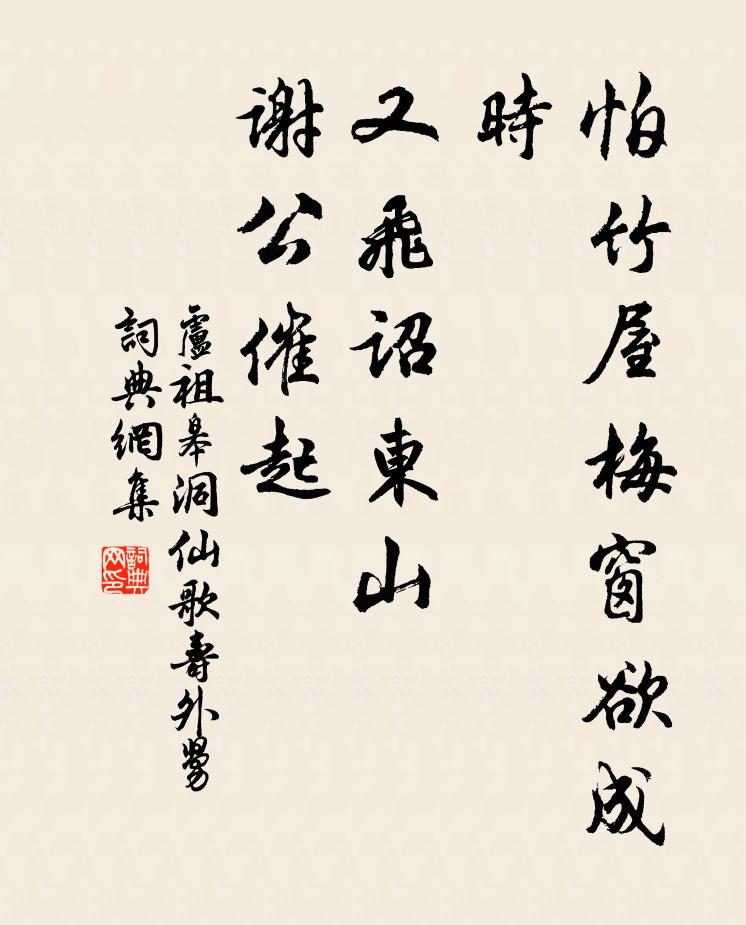 怕竹屋梅窗欲成
時
又飛詔東山
謝公催起
盧祖皋洞仙歌壽外舅
詞典網集
詞典
网印